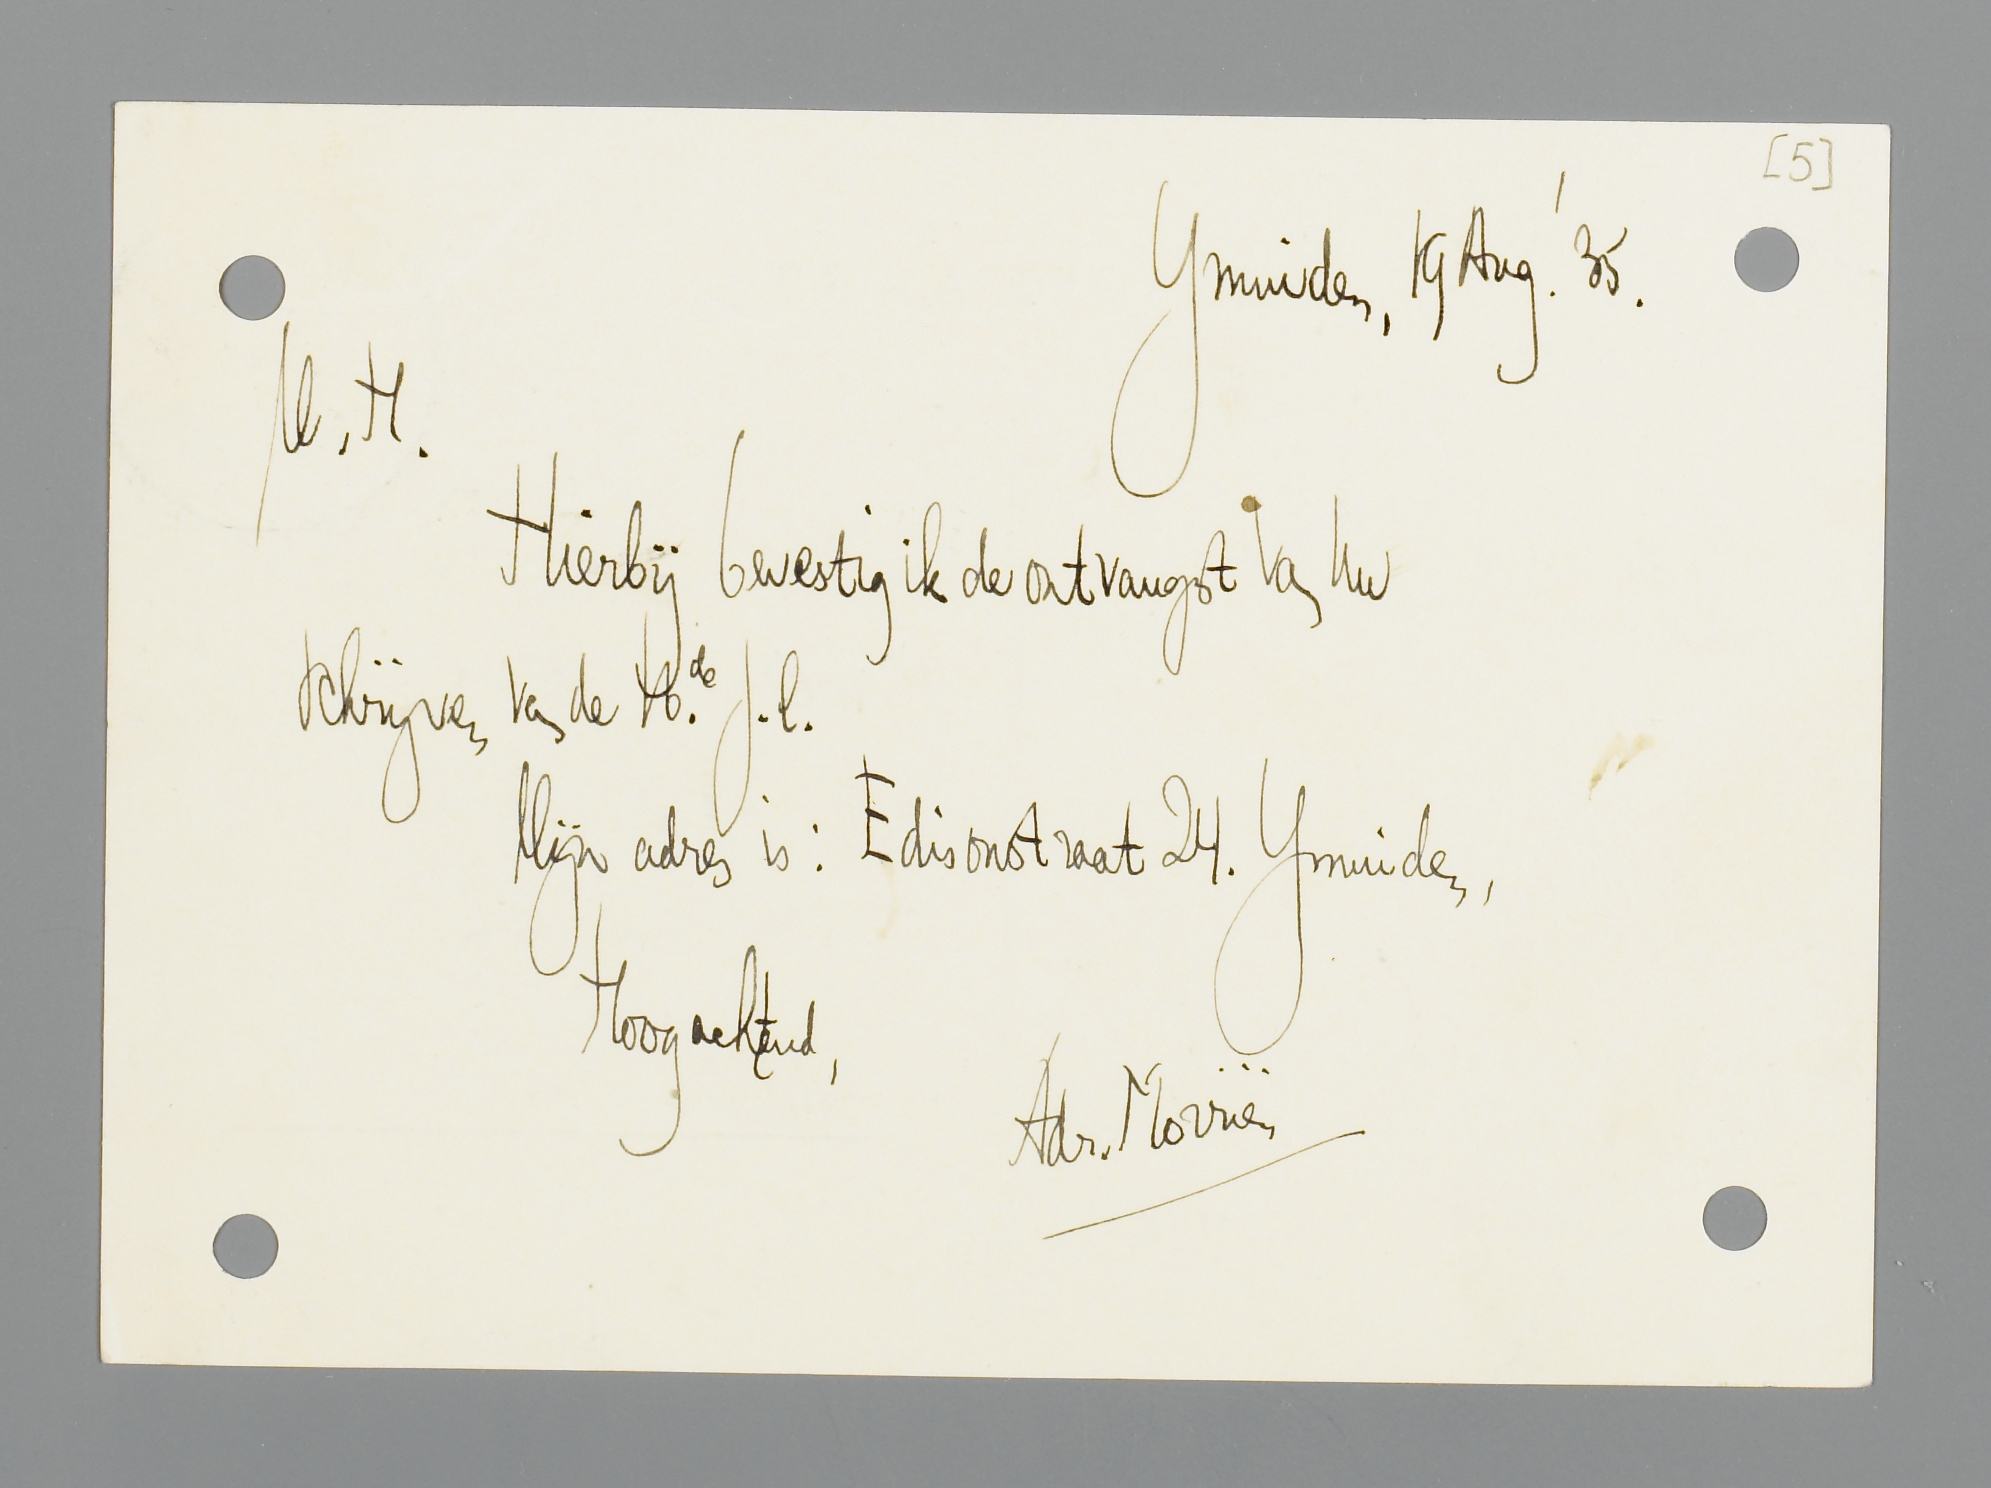 [5]
Ymuiden, 19 Aug. '35.
M.H.
Hierbij bevestig ik de ontvangst van Uw
schrijven van de 16.de j.l.
Mijn adres is: Edisonstraat 24. Ymuiden,
Hoogachtend,
Adr. Morriën